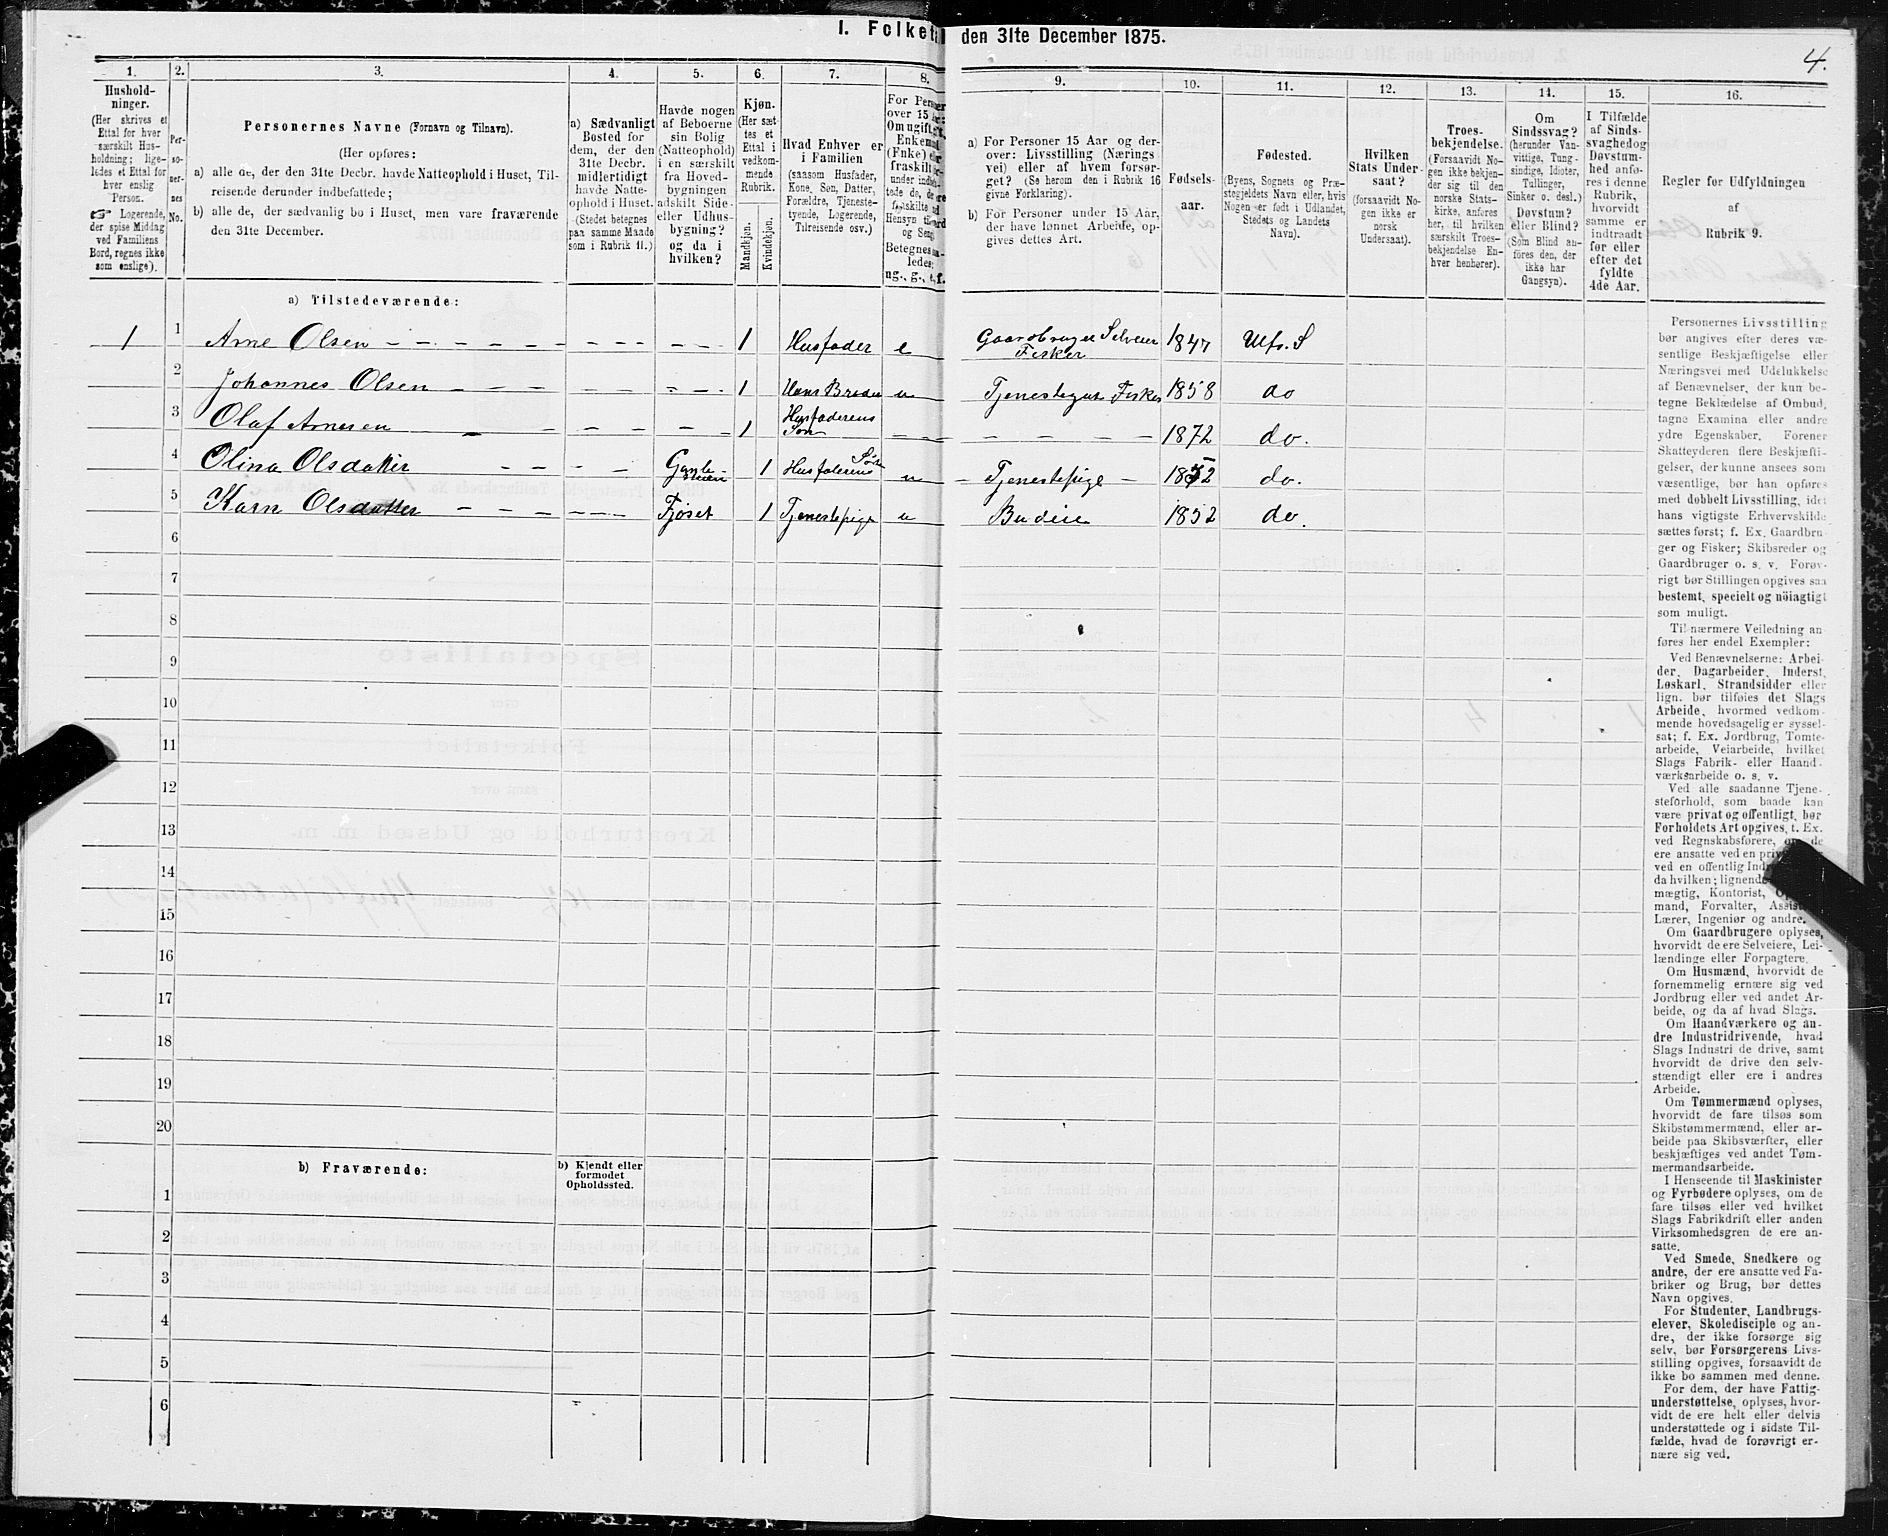 I. Folketal den 31te December 1875.
4.
1.
2.
3.
4.
5.
6.
7.
8.
9.
10.
11.
12.
13.
14.
15.
16.
Hushold-
ninger.
(Her skrives et
Ettal for hver
særskilt Hus-
holdning; lige-
ledes et Ettal for
hver enslig
Person.
☞ Logerende,
der spise Middag
ved Familiens
Bord, regnes ikke
som enslige).
Per-
so-
ner-
nes
No.
Personernes Navne (Fornavn og Tilnavn).
(Her opføres:
a) alle de, der den 31te Decbr. havde Natteophold i Huset, Til-
reisende derunder indbefattede;
b) alle de, der sædvanlig bo i Huset, men vare fraværende
den 31te December.
a) Sædvanligt
Bosted for
dem, der den
31te Decbr.
midlertidigt
havde Natte-
ophold i Huset.
(Stedet betegnes
paa samme Maade
som i Rubrik 11.)
Havde nogen
af Beboerne
sin Bolig
(Natteophold)
i en særskilt
fra Hoved-
bygningen
adskilt Side-
eller Udhus-
bygning?
og da i
hvilken?
Kjøn.
(Her sæt-
tes et
Ettal i
vedkom-
mende
Rubrik.
Mandkjøn.
Kvindekjøn.
Hvad Enhver er
i Familien
(saasom Husfader,
Kone, Søn, Datter,
Forældre, Tjeneste-
tyende, Logerende,
Tilreisende osv.)
For Personer
over 15 Aar:
Om ugift, gift,
Enkemand
(Enke) eller
fraskilt
Betegnes
ledes:
ug., g., e., f.
a) For Personer 15 Aar og der-
over: Livsstilling (Nærings
vei) eller af hvem forsør-
get? (Se herom den i Rubrik 16
givne Forklaring).
b) For Personer under 15 Aar,
der have lønnet Arbeide, op-
gives dettes Art.
Fødsels-
aar.
Fødested.
(Byens, Sognets og Præ-
stegjeldets Navn eller, hvis
Nogen er født i Udlandet,
Stedets og Landets
Navn).
Hvilken
Stats Under-
saat?
(forsaavidt No-
gen ikke er
norsk
Undersaat).
Troes-
bekjendelse.
(Forsaavidt No-
gen ikke bekjen-
der sig til den
norske Stats-
kirke, anføres
her, til hvilken
særskilt Troes-
bekjendelse En-
hver henhører).
Om
Sindssvag?
(herunder Van-
vittige, Tung-
sindige, Idioter,
Tullinger,
Sinker o. desl.)
Døvstum?
eller Blind?
(Som Blind an-
føres den, der
ikke har
Gangsyn).
I Tilfælde
af Sinds-
svaghed og
Døvstum-
hed anfø-
res i denne
Rubrik,
hvorvidt
samme er
indtraadt
før eller
efter det
fyldte
4de Aar.
Regler for Udfyldningen
af
Rubrik 9.
a) Tilstedeværende:
1 1 Arne Olsen 1 Husfader e Gaardbruger Selveier Fisker 1847 Ulfs. S
2 Johannes Olsen 1 Hans Broder u Tjenestegut Fisker 1858 do
3 Olaf Arnesen 1 Husfaderens Søn 1872 do.
4 Olina Olsdatter 1 Husfaderens Søster u Tjenestepige 1852 do.
5 Karn Olsdatter Fjøset 1 Tjenestepige u Budeie 1852 do.
6
7
8
9
10
11
12
13
14
15
16
17
18
19
20
b) Fraværende:
b) Kjendt eller
formodet
Opholdssted.
1
2
3
4
5
6
Personernes Livsstilling
bør angives efter deres væ-
sentlige Beskjæftigelse eller
Næringsvei med Udelukkelse
af Benævnelser, der kun be-
tegne Beklædelse af Ombud,
tagne Examina eller andre
ydre Egenskaber. Forener
Skatteyderen flere Beskjæfti-
gelser, der kunne ansees som
væsentlige, bør han opføres
med dobbelt Livsstilling, idet
hans vigtigste Erhvervskilde
sættes først; f. Ex. Gaardbru-
ger og Fisker; Skibsreder og
Gaardbruger o. s. v. Forøv-
rigt bør Stillingen opgives saa
bestemt, specielt og nöiagtigt
som muligt.
Til nærmere Veiledning an
føres her endel Exempler:
Ved Benævnelserne: Arbei-
der, Dagarbeider, Inderst,
Løskarl, Strandsidder eller
lign. bør tilføies det Slags
Arbeide, hvormed vedkom-
mende hovedsagelig er syssel-
sat; f. Ex. Jordbrug, Tomte-
arbeide, Veiarbeide, hvilket
Slags Fabrik- eller Haand-
værksarbeide o. s. v.
Ved alle saadanne Tjene-
steforhold, som baade kan
være privat og offentligt, bør
Forholdets Art opgives, t. Ex.
ved Regnskabsførere, om de
ere ansatte ved en
ved en offentlig
da hvilken; lignende
mægtig, Kontorist,
mand, Forvalter,
Lærer, Ingeniør og andre.
Om Gaardbrugere oplyses,
hvorvidt de ere Selveiere, Lei-
lændinge eller Forpagtere.
Om Husmænd, hvorvidt de
fornemmelig ernære sig ved
Jordbrug eller ved andet Ar-
beide, og da af hvad Slags.
Om Haandværkere og an
dre Industridrivende, hvad
Slags Industri de drive, samt
hvorvidt de drive den selv-
stændigt eller ere i andres
Arbeide.
Om Tømmermænd oplyses,
hvorvidt de fare tilsøs som
Skibstømmermænd, eller ar-
beide paa Skibsværfter, eller
beskjæftiges ved andet Tøm-
mermandsarbeide.
I Henseende til Maskinister
og Fyrbødere oplyses, om de
fare tilsøs eller ved hvilket
Slags Fabrikdrift eller anden
Virksomhedsgren de ere an-
satte.
Ved Smede, Snedkere og
andre, der ere ansatte ved Fa-
briker og Brug, bør dettes
Navn opgives.
For Studenter, Landbrugs-
elever, Skoledisciple og an-
dre, der ikke forsørge sig
selv, bør Forsørgerens Livs-
stilling opgives, forsaavidt de
ikke bo sammen med denne.
For dem, der have Fattig-
understøttelse, oplyses, hvor-
vidt de ere helt eller delvis
understøttede og i sidste Til-
fælde, hvad de forøvrigt er-
nære sig ved.